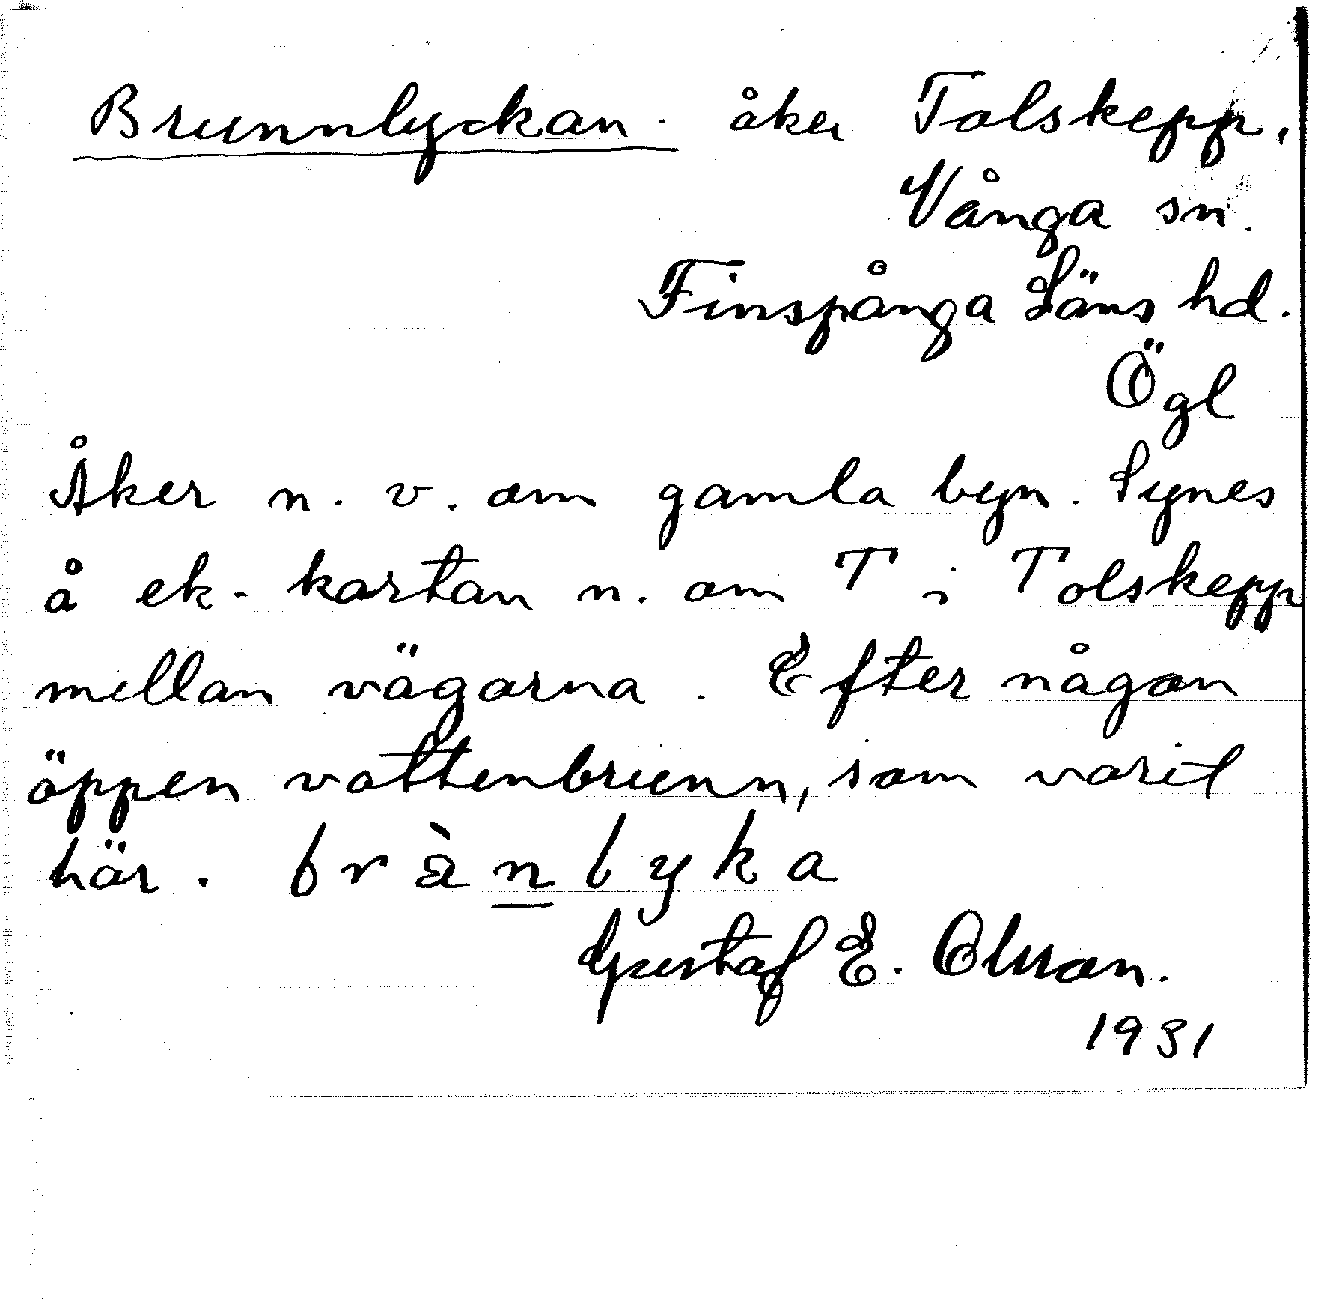 Brunnlyckan. åker Tolskepp,
Vånga sn.
Finspånga Läns hd.
Ögl
Åker n. v. om gamla byn. Synes
å ek-kartan n. om T i Tolskepp
mellan vägarna. Efter någon
öppen vattenbrunn, som varit
här. brànlyka
Gustaf E. Olsson.
1931